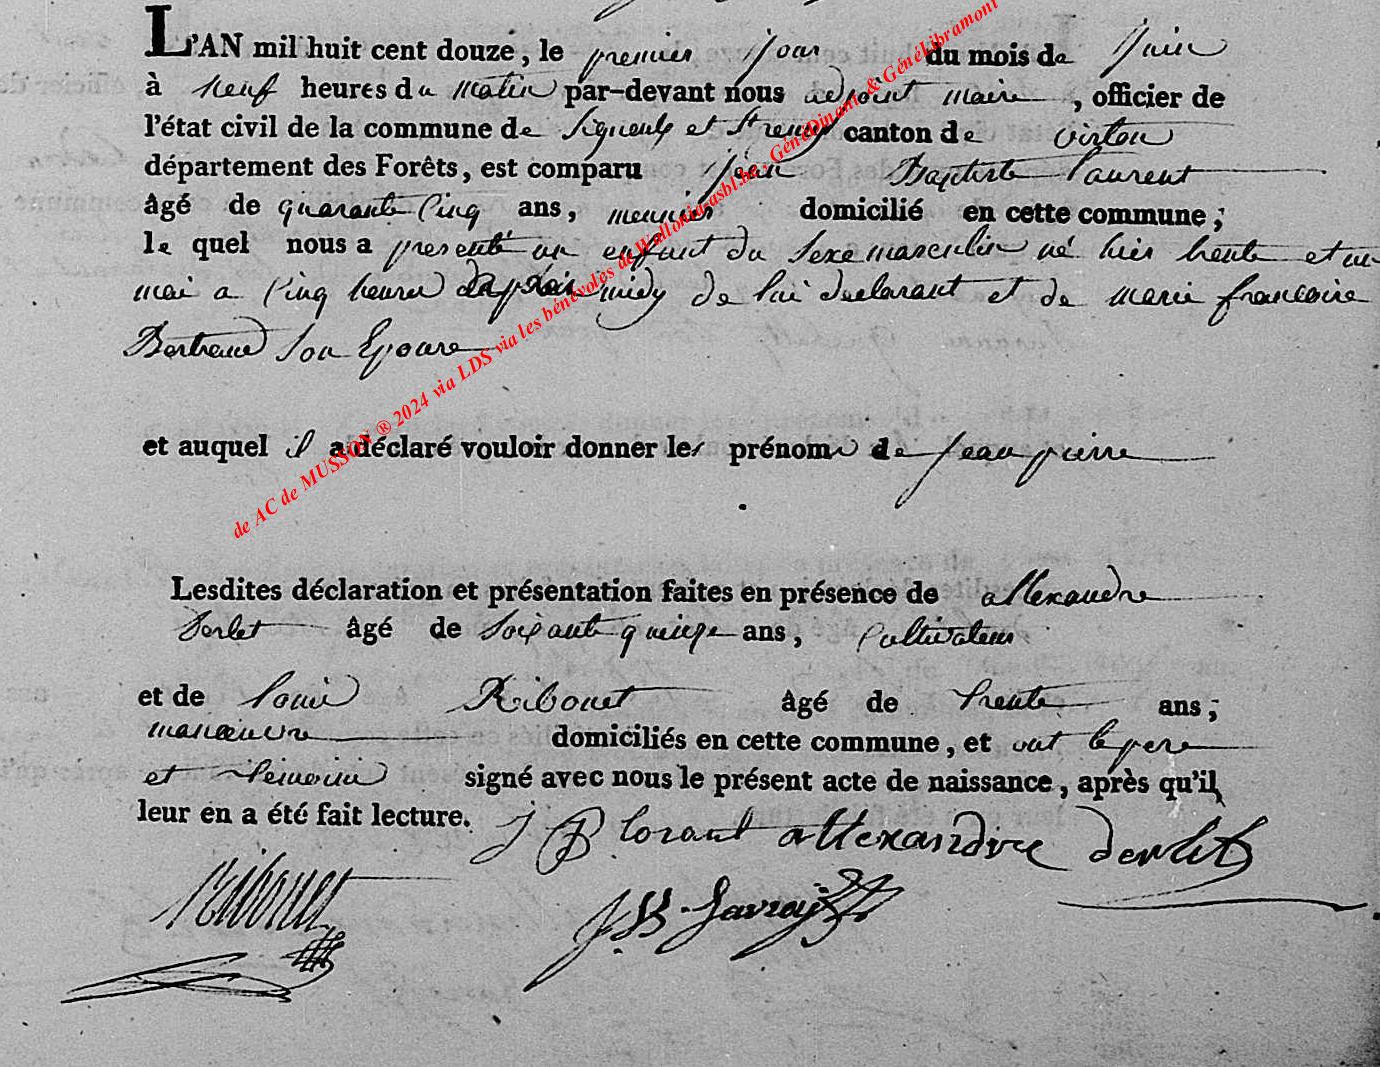 L'AN mil huit cent douze, le premier jour du mois de juin
à neuf heures du matin par-devant nous adjoint maire, officier de
l'état civil de la commune de Signeulx et St remy canton de virton
département des Forêts, est comparu jean Baptiste Laurent
âgé de quarante Cinq ans, meunier domicilié en cette commune;
le quel nous a presenté un enfant du Sexe masculin né hier trente et un
mai a Cinq heures midy de lui declarant et de marie francoise
Bertrand Son Epouse
et auquel il a déclaré vouloir donner les prénoms de jean pierre
Lesdites déclaration et présentation faites en présence de allexandre
âgé de Soixante quinze ans, Cultivateur
et de Louis Ribonet âgé de trente ans;
manœuvre domiciliés en cette commune, et ont le pere
et témoins signé avec nous le présent acte de naissance, après qu'il
leur en a été fait lecture. J B lorant allexandre derlet
Ribonet
de AC de MUSSON ® 2024 via LDS via les bénévoles de Wallonia-asbl.be, GénéDinant & GénéLibramont